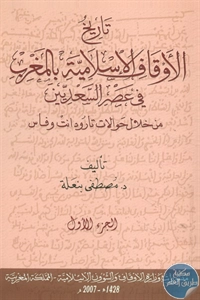 تاريخ
الأوقاف الإسلامية بالمغرب
في عصر السعديين
من خلال حوالات تارودانت وفاس
تأليف
د. مصطفى بنعلة
الجزء الأول
وزارة الأوقاف والشؤون الإسلامية - المملكة المغربية
1428هـ - 2007م